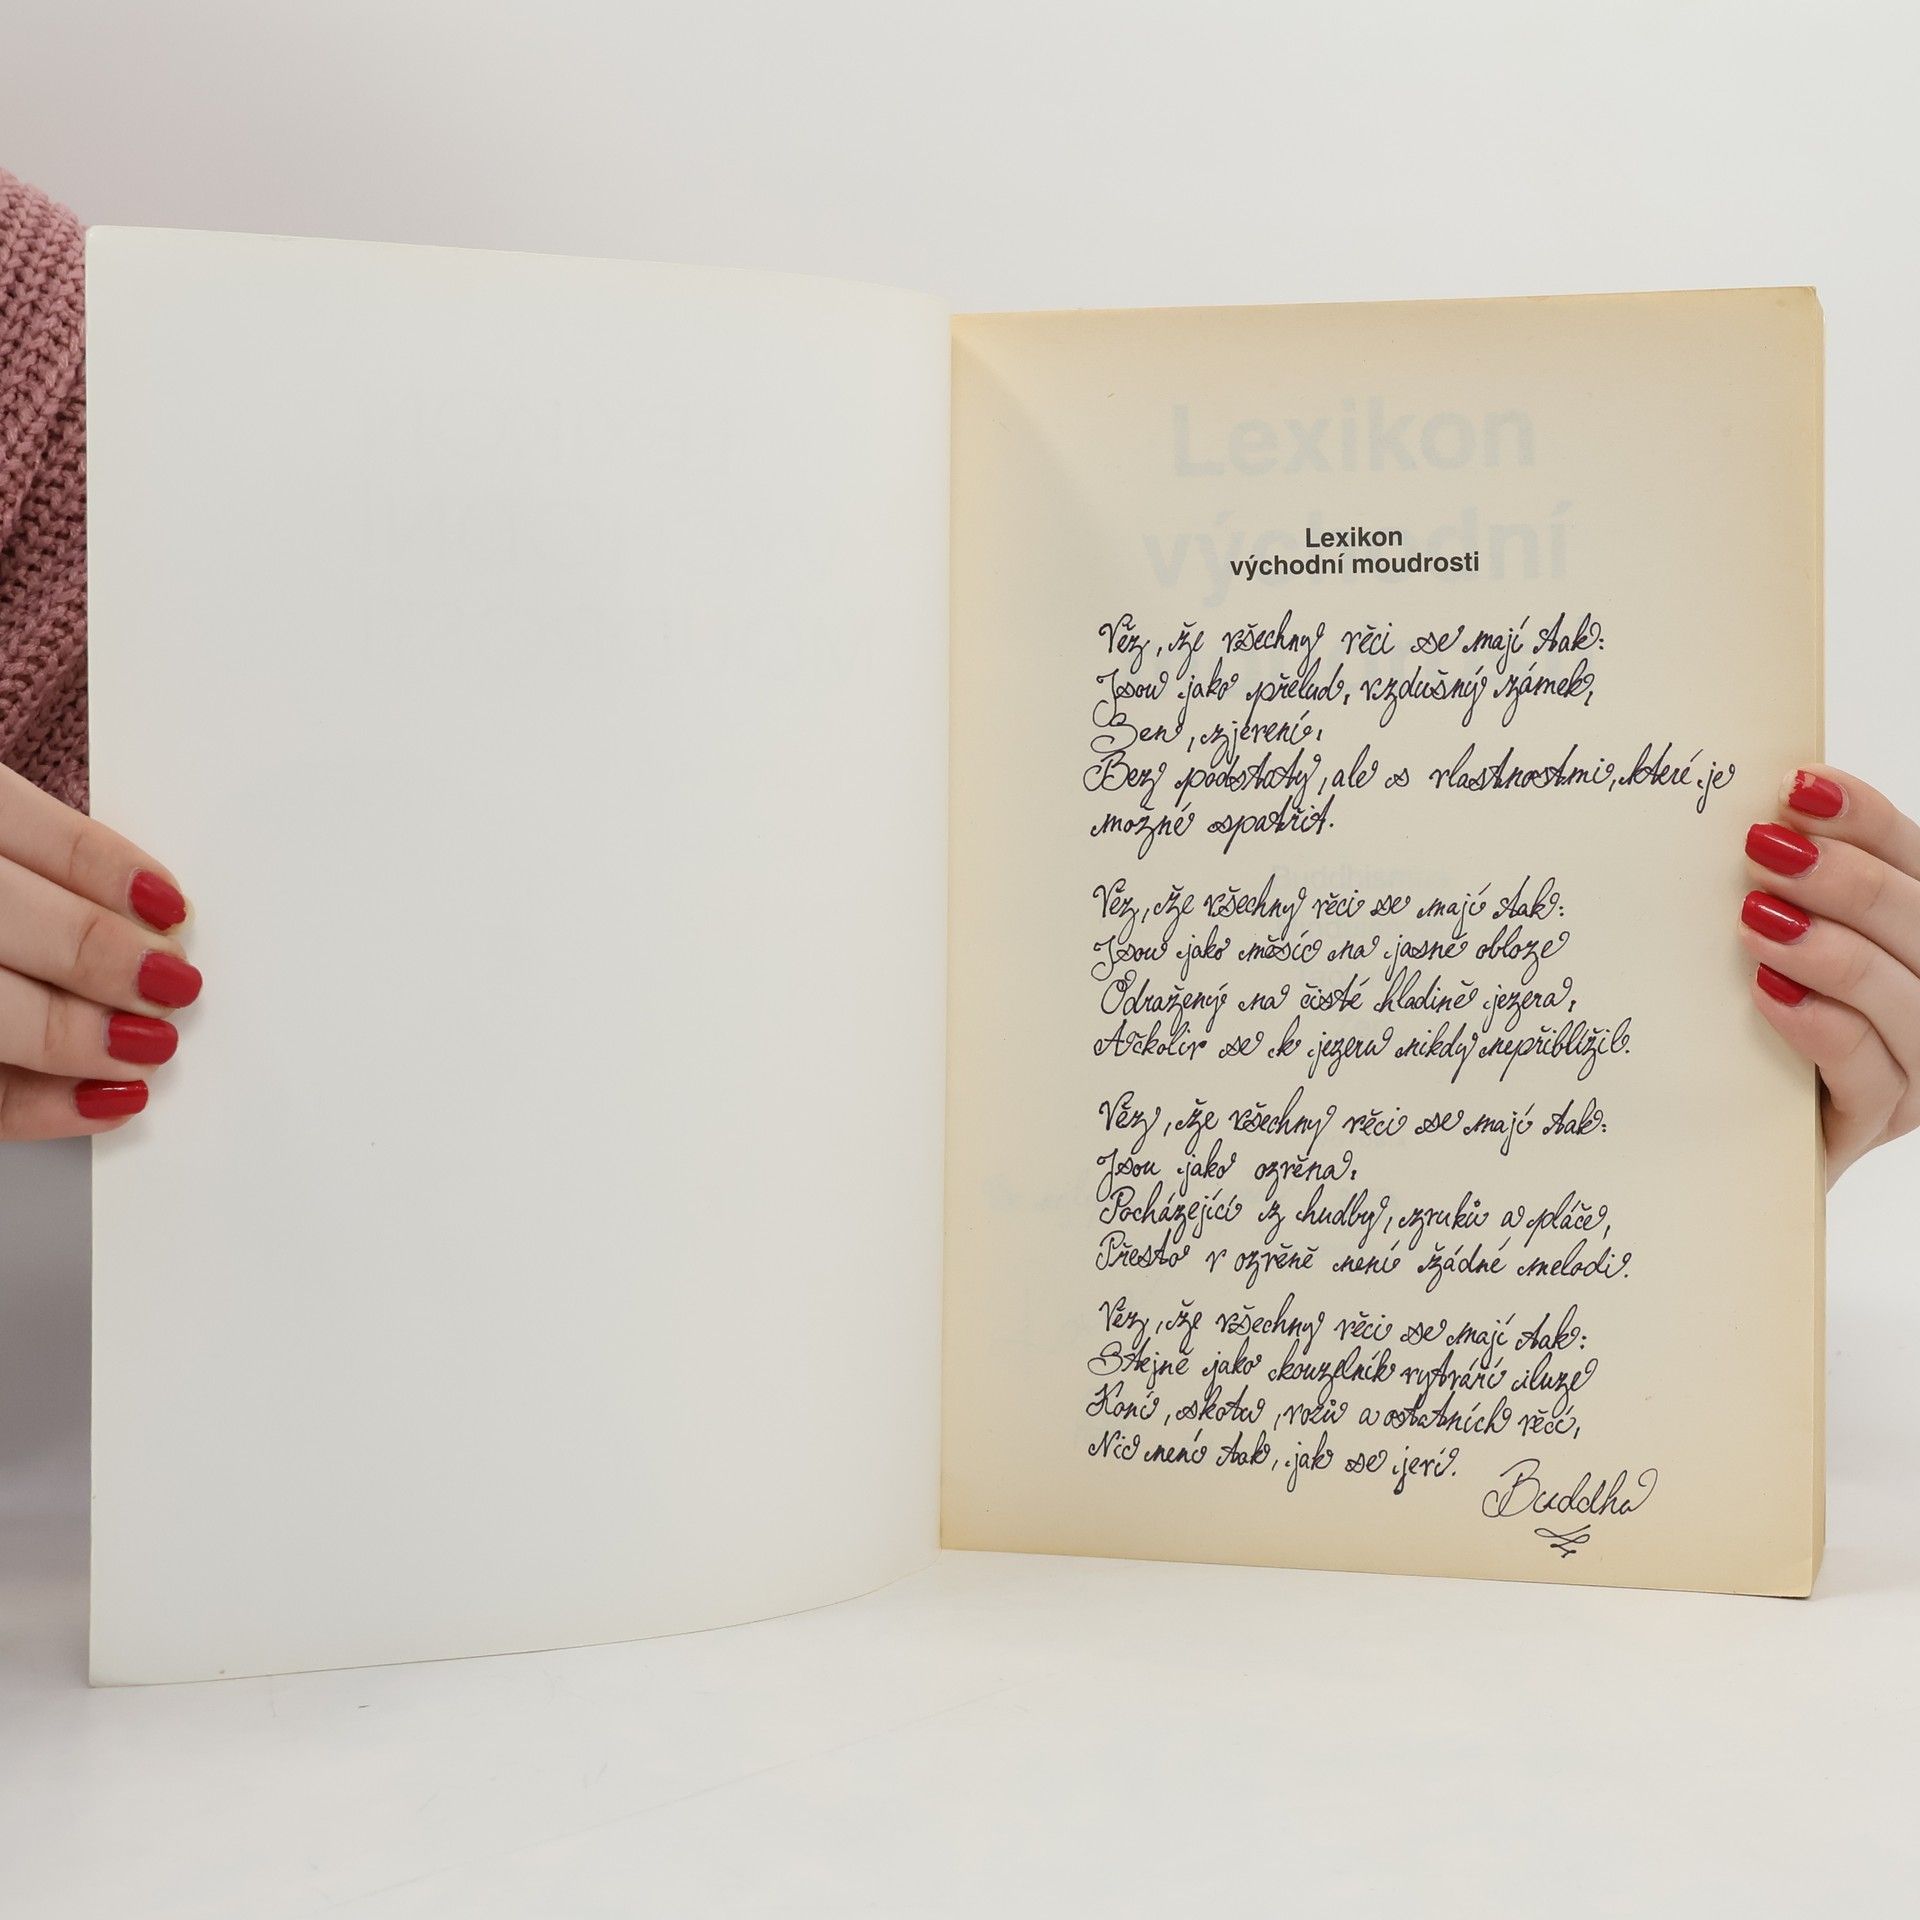 Lexikon
východní
Lexikon
východní moudrosti
Věz, že všechny věci se mají tak:
Jsou jako přelud, vzdušný zámek,
Sen, zjevení,
Bez podstaty, ale s vlastnostmi, které je
možné spatřit.
Věz, že všechny věci se mají tak:
Jsou jako měsíc na jasné obloze
Odražený na čisté hladině jezera,
Ačkoliv se k jezeru nikdy nepřiblížil.
Věz, že všechny věci se mají tak:
Jsou jako ozvěna,
Pocházející z hudby, zvuků a pláče,
Přesto v ozvěně není žádné melodi.
Věz, že všechny věci se mají tak:
Stejně jako kouzelník vytváří iluze
Koní, skotu, vozů a ostatních věcí,
Nic není tak, jak se jeví.
Buddha